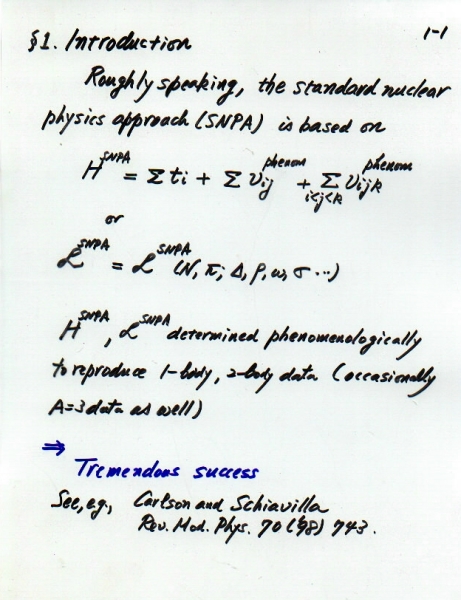 1-1
§1. Introduction
Roughly speaking, the standard nuclear
physics approach (SNPA) is based on
H^SNPA = Σ ti + Σ υij^phenom + Σ i<j<k υijk^phenom
or
ℒ^SNPA = ℒ^SNPA (N, π, Δ, ρ, ω, σ ...)
H^SNPA, ℒ^SNPA determined phenomenologically
to reproduce 1-body, 2-body data (occasionally
A=3 data as well)
⇒
Tremendous success
See, e.g., Carlson and Schiavilla
Rev. Mod. Phys. 70 ('98) 743.